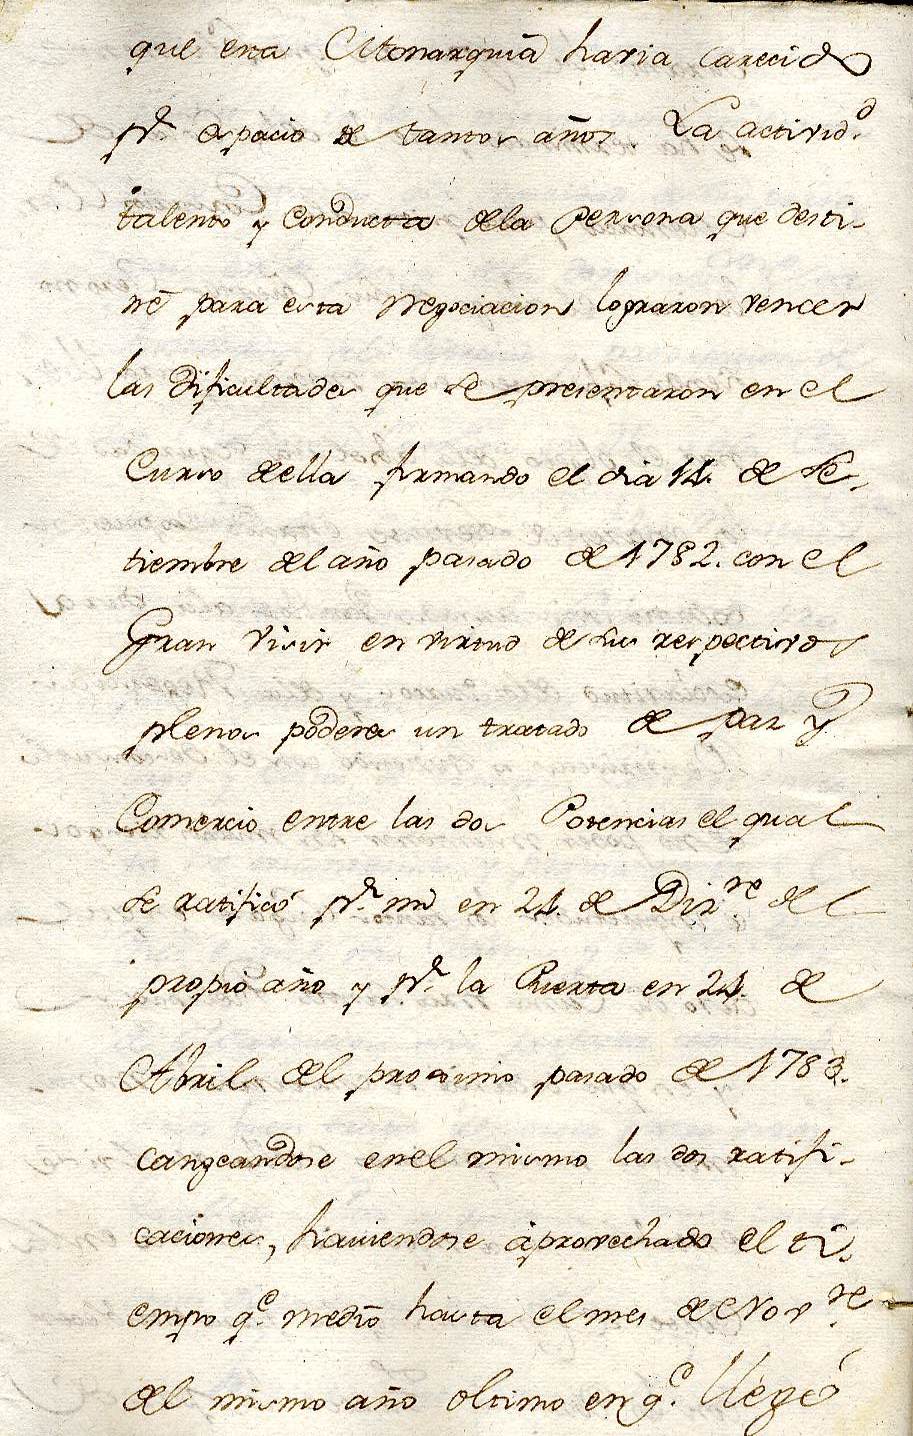 que esta Monarquia havia carecido
pr. espacio de tantos años. La activid.d
talento y conducta dela persona que desti-
né para esta Negociacion lograron vencer
las dificultades que se presentaron en el
Curso della firmando el dia 14. de Se-
tiembre del año pasado de 1782. con el
Gran Visir en virtud de sus respectivos
plenos poderes un tratado de paz y
Comercio entre las dos Potencias el qual
se ratificó pr. mi en 24. de Diz.re del
propio año y pr. la Puerta en 24. de
Abril del procsimo pasado de 1783.
cangeandose enel mismo las dos ratifi-
caciones, haviendose aprovechado el ti-
empo q.e medió hasta el mes de Nov.re
del mismo año ultimo en q.e llegó